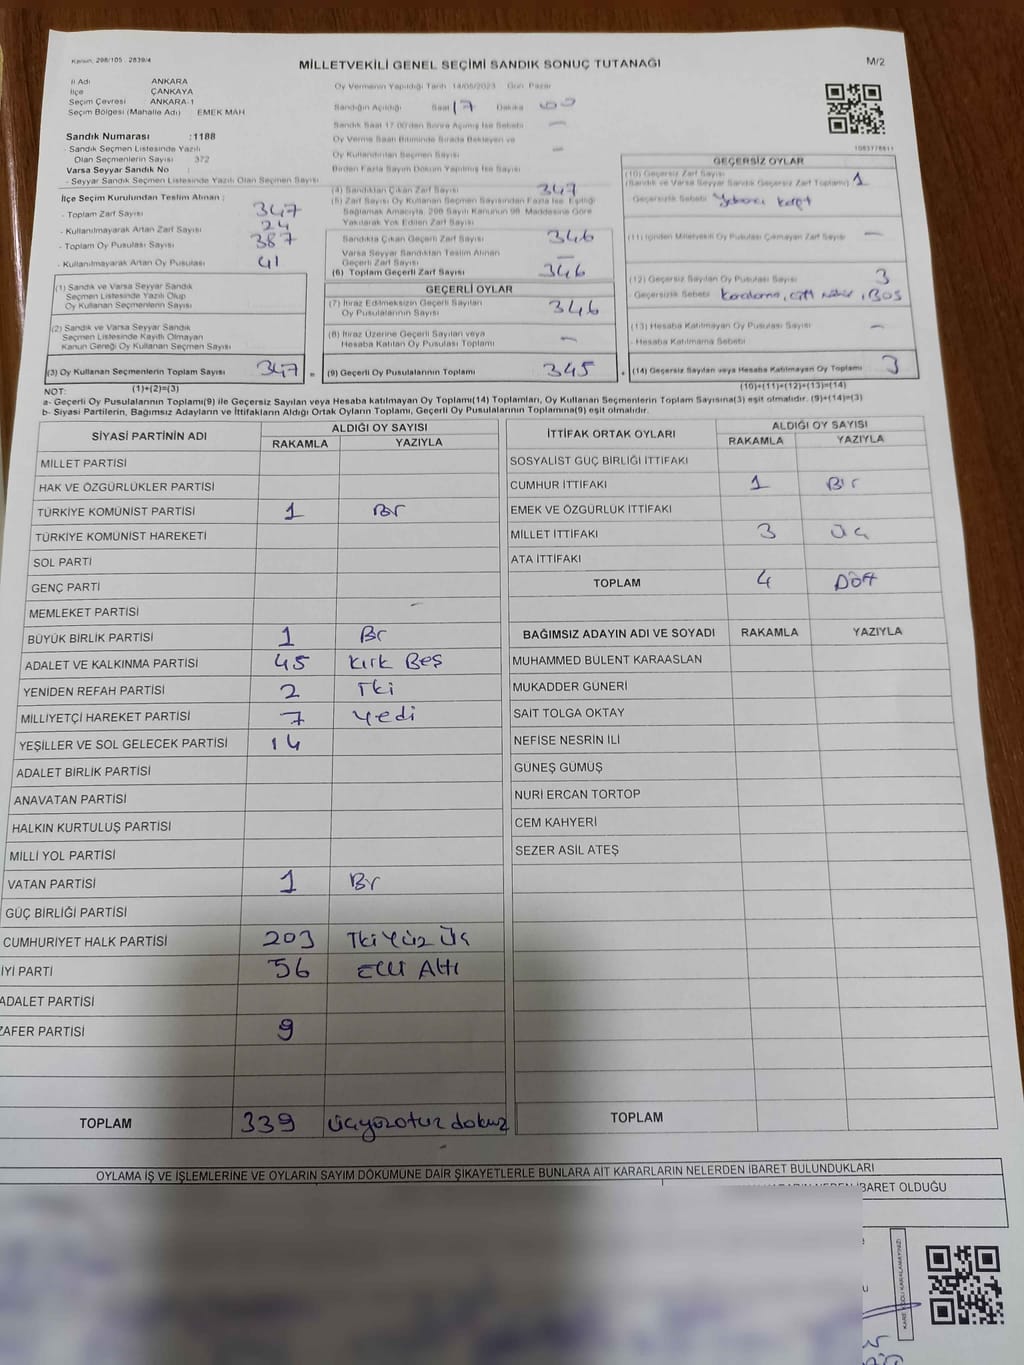 Kanun: 298/105 . 2839/4
MİLLETVEKİLİ GENEL SEÇİMİ SANDIK SONUÇ TUTANAĞI
M/2
İl Adı ANKARA
İlçe ÇANKAYA
Seçim Çevresi ANKARA-1
Seçim Bölgesi (Mahalle Adı) EMEK MAH
Sandık Numarası :1188
- Sandık Seçmen Listesinde Yazılı
Olan Seçmenlerin Sayısı 372
Varsa Seyyar Sandık No :
- Seyyar Sandık Seçmen Listesinde Yazılı Olan Seçmen Sayısı
İlçe Seçim Kurulundan Teslim Alınan ;
- Toplam Zarf Sayısı 347
- Kullanılmayarak Artan Zarf Sayısı 24
- Toplam Oy Pusulası Sayısı 387
- Kullanılmayarak Artan Oy Pusulası 41
(1) Sandık ve Varsa Seyyar Sandık
Seçmen Listesinde Yazılı Olup
Oy Kullanan Seçmenlerin Sayısı
(2) Sandık ve Varsa Seyyar Sandık
Seçmen Listesinde Kayıtlı Olmayan
Kanun Gereği Oy Kullanan Seçmen Sayısı
(3) Oy Kullanan Seçmenlerin Toplam Sayısı 347
(1)+(2)=(3)
Oy Vermenin Yapıldığı Tarih 14/05/2023 Gün Pazar
Sandığın Açıldığı Saat 17 Dakika 00
Sandık Saat 17.00'den Sonra Açılmış İse Sebebi —
Oy Verme Saati Bitiminde Sırada Bekleyen ve
Oy Kullandırılan Seçmen Sayısı —
Birden Fazla Sayım Döküm Yapılmış İse Sayısı
(4) Sandıktan Çıkan Zarf Sayısı 347
(5) Zarf Sayısı Oy Kullanan Seçmen Sayısından Fazla İse Eşitliği
Sağlamak Amacıyla, 298 Sayılı Kanunun 98. Maddesine Göre
Yakılarak Yok Edilen Zarf Sayısı
Sandıkta Çıkan Geçerli Zarf Sayısı 346
Varsa Seyyar Sandıktan Teslim Alınan
Geçerli Zarf Sayısı —
(6) Toplam Geçerli Zarf Sayısı 346
GEÇERLİ OYLAR
(7) İtiraz Edilmeksizin Geçerli Sayılan
Oy Pusulalarının Sayısı 346
(8) İtiraz Üzerine Geçerli Sayılan veya
Hesaba Katılan Oy Pusulası Toplamı —
(9) Geçerli Oy Pusulalarının Toplamı 345
1083778811
GEÇERSİZ OYLAR
(10) Geçersiz Zarf Sayısı
(Sandık ve Varsa Seyyar Sandık Geçersiz Zarf Toplamı) 1
Geçersizlik Sebebi Yabancı
(11) İçinden Milletvekili Oy Pusulası Çıkmayan Zarf Sayısı —
(12) Geçersiz Sayılan Oy Pusulası Sayısı 3
- Geçersizlik Sebebi Karalama, çift mühür, BOŞ
(13) Hesaba Katılmayan Oy Pusulası Sayısı —
- Hesaba Katılmama Sebebi
(14) Geçersiz Sayılan veya Hesaba Katılmayan Oy Toplamı 3
(10)+(11)+(12)+(13)=(14)
NOT:
a- Geçerli Oy Pusulalarının Toplamı(9) ile Geçersiz Sayılan veya Hesaba katılmayan Oy Toplamı(14) Toplamları, Oy Kullanan Seçmenlerin Toplam Sayısına(3) eşit olmalıdır. (9)+(14)=(3)
b- Siyasi Partilerin, Bağımsız Adayların ve İttifakların Aldığı Ortak Oyların Toplamı, Geçerli Oy Pusulalarının Toplamına(9) eşit olmalıdır.
SİYASİ PARTİNİN ADI ALDIĞI OY SAYISI
RAKAMLA YAZIYLA
MİLLET PARTİSİ
HAK VE ÖZGÜRLÜKLER PARTİSİ
TÜRKİYE KOMÜNİST PARTİSİ 1 Bir
TÜRKİYE KOMÜNİST HAREKETİ
SOL PARTİ
GENÇ PARTİ
MEMLEKET PARTİSİ
BÜYÜK BİRLİK PARTİSİ 1 Bir
ADALET VE KALKINMA PARTİSİ 45 Kırk Beş
YENİDEN REFAH PARTİSİ 2 İki
MİLLİYETÇİ HAREKET PARTİSİ 7 Yedi
YEŞİLLER VE SOL GELECEK PARTİSİ 14
ADALET BİRLİK PARTİSİ
ANAVATAN PARTİSİ
HALKIN KURTULUŞ PARTİSİ
MİLLİ YOL PARTİSİ
VATAN PARTİSİ 1 Bir
GÜÇ BİRLİĞİ PARTİSİ
CUMHURİYET HALK PARTİSİ 203 İki Yüz Üç
İYİ PARTİ 56 Elli Altı
ADALET PARTİSİ
ZAFER PARTİSİ 9
TOPLAM 339 üçyüzotuz dokuz
İTTİFAK ORTAK OYLARI ALDIĞI OY SAYISI
RAKAMLA YAZIYLA
SOSYALİST GÜÇ BİRLİĞİ İTTİFAKI
CUMHUR İTTİFAKI 1 Bir
EMEK VE ÖZGÜRLÜK İTTİFAKI
MİLLET İTTİFAKI 3 Üç
ATA İTTİFAKI
TOPLAM 4 Dört
BAĞIMSIZ ADAYIN ADI VE SOYADI RAKAMLA YAZIYLA
MUHAMMED BÜLENT KARAASLAN
MUKADDER GÜNERİ
SAİT TOLGA OKTAY
NEFİSE NESRİN İLİ
GÜNEŞ GÜMÜŞ
NURİ ERCAN TORTOP
CEM KAHYERİ
SEZER ASİL ATEŞ
TOPLAM
OYLAMA İŞ VE İŞLEMLERİNE VE OYLARIN SAYIM DÖKÜMÜNE DAİR ŞİKAYETLERLE BUNLARA AİT KARARLARIN NELERDEN İBARET BULUNDUKLARI
İBARET OLDUĞU